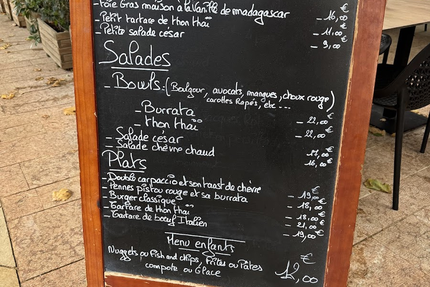 - Foie Gras maison à la Vanille de madagascar - 16,00 €
- Petit tartare de thon thaï - 11,00 €
- Petite salade césar - 9,00
Salades
- Bowls : (Boulgour, avocats, mangues, choux rouge)
carottes Rapés, etc...
- Burrata - 22,00 €
- thon thaï - 22,00
- Salade césar
- Salade chèvre chaud - 16,00
Plats
- Double carpaccio et son toast de chèvre - 19,00 €
- Pennes pistou rouge et sa burrata - 18,00
- Burger classique - 18,00 €
- Tartare de thon thaï - 21,00
- Tartare de bœuf Italien - 19,00
Menu enfants
Nuggets ou Fish and chips, Frites ou Pâtes
compote ou Glace 12,00 €